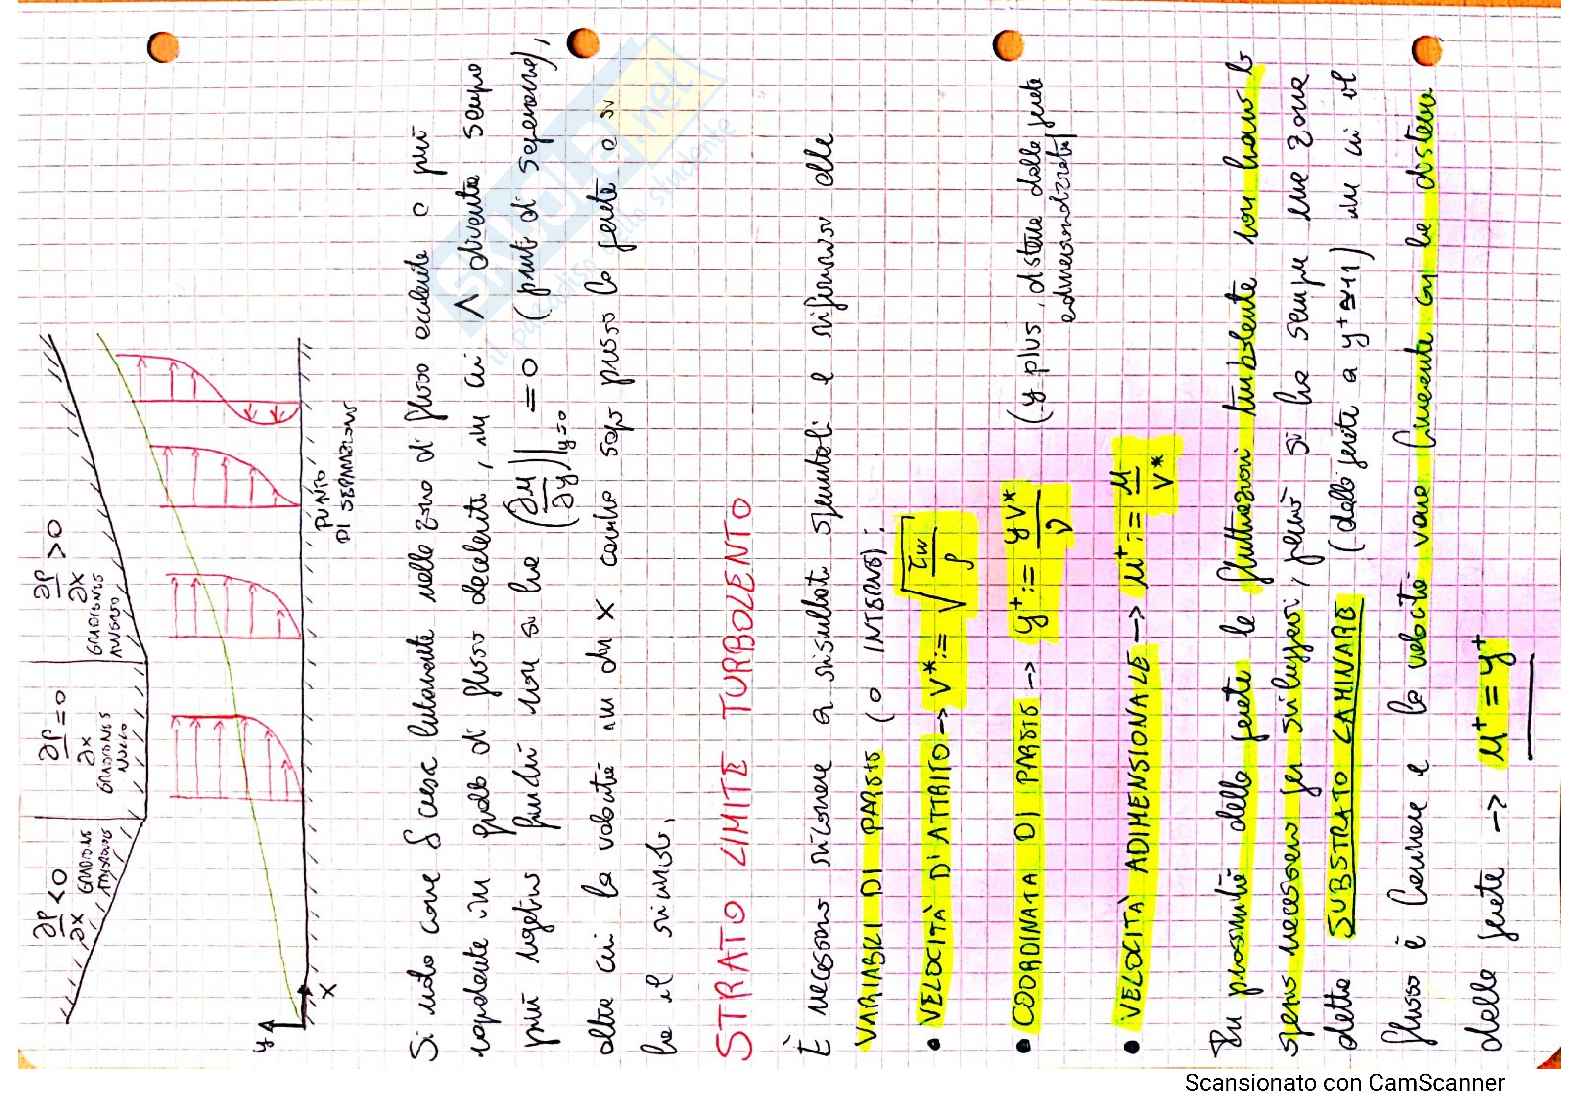 ∂P/∂x < 0
GRADIENTE
∂P/∂x = 0
GRADIENTE
NULLO
∂P/∂x > 0
GRADIENTE
AVVERSO
y
x
PUNTO
DI SEPARAZIONE
Si nota come δ cresca lentamente nelle zone di flusso accelerato e più
rapidamente in quelle di flusso decelerato, in cui Λ diventa sempre
più negativo finché non si ha (∂u/∂y)|y=0 = 0 (punto di separazione),
oltre cui la velocità in dir x cambia segno presso la parete e si
ha il
STRATO LIMITE TURBOLENTO
È necessario ricorrere a risultati sperimentali e riferirsi alle
VARIABILI DI PARETE (O INTERNE):
• VELOCITÀ D'ATTRITO -> V* := √(τw/ρ)
• COORDINATA DI PARETE -> y⁺ := yV*/ν (y plus, distanza dalla parete
adimensionalizzata)
• VELOCITÀ ADIMENSIONALE -> u⁺ := u/V*
In prossimità della parete le fluttuazioni turbolente non hanno lo
spazio necessario per svilupparsi, perciò si ha sempre una zona
detta SUBSTRATO LAMINARE (dalla parete a y⁺≃11) in cui il
flusso è laminare e la velocità varia linearmente con la distanza
dalla parete -> u⁺ = y⁺
skuola.net
il paradiso dello studente
Scansionato con CamScanner